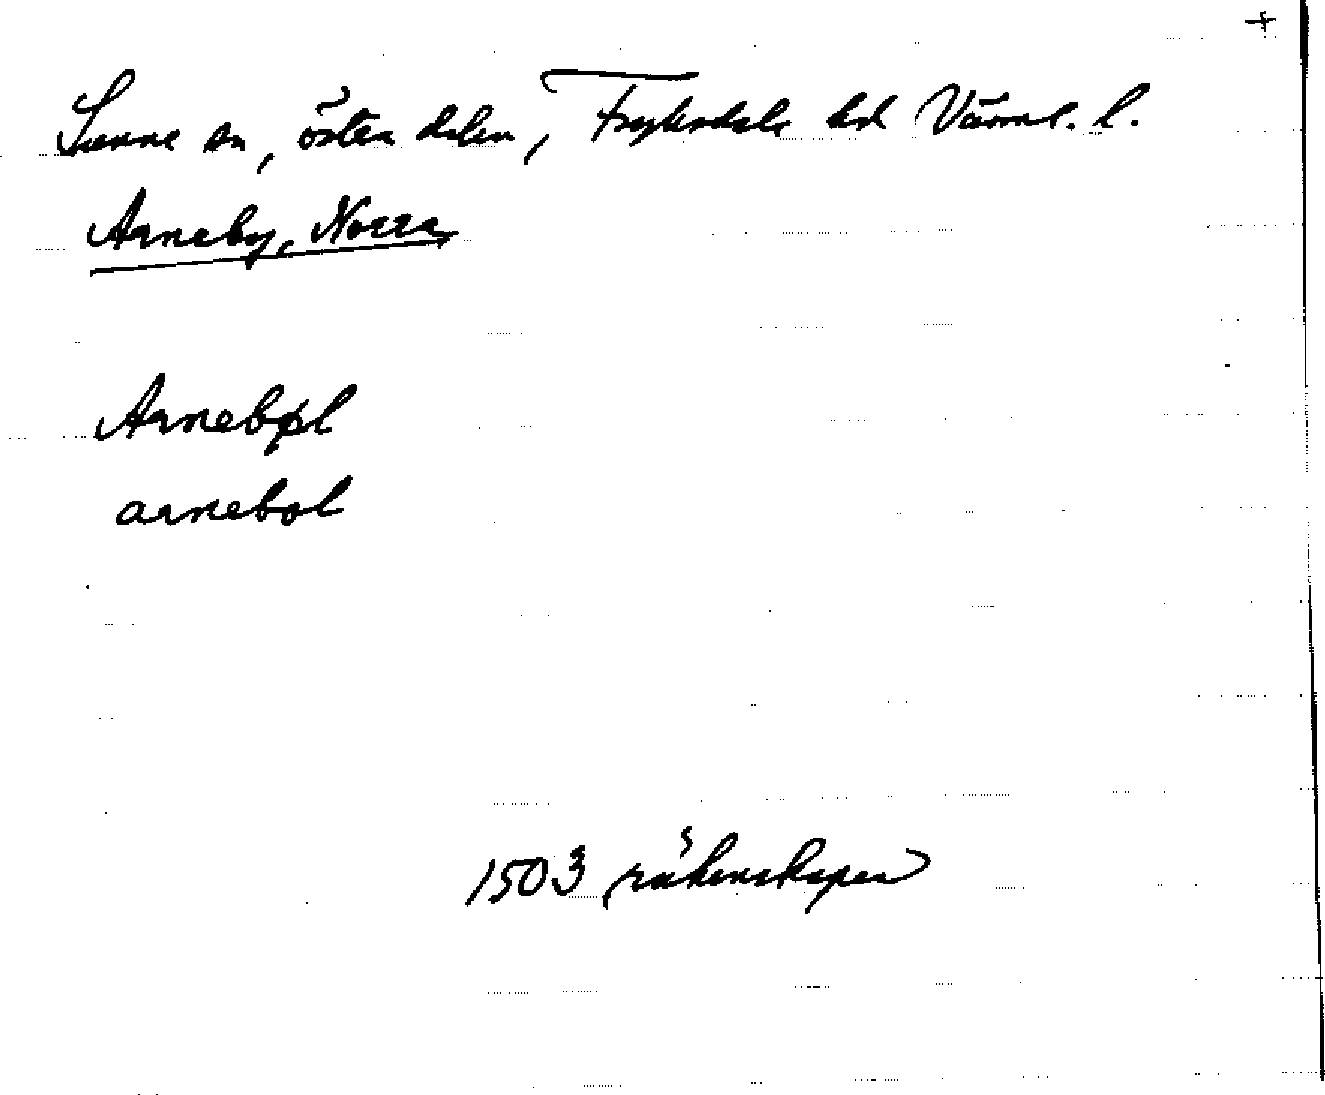 +
Sunne sn, östra delen, Fryksdals hd Värml. l.
Arneby, Norra
Arnebøl
arnebol
1503 räkenskaper